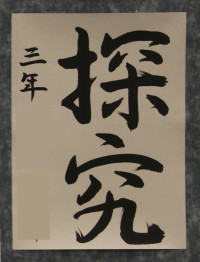 探究
三年